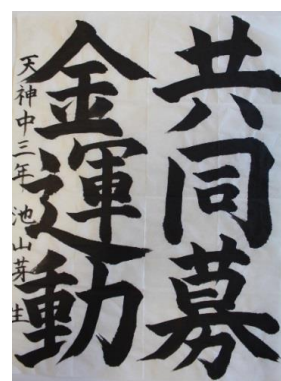 共同募
金運動
天神中三年 池山芽生